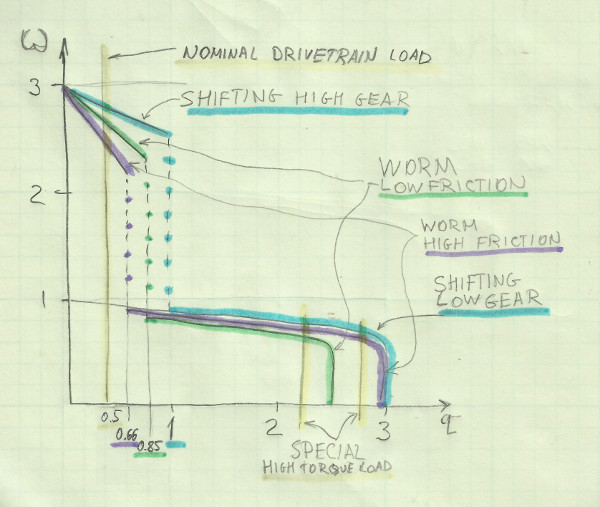 ω
NOMINAL DRIVETRAIN LOAD
3
SHIFTING HIGH GEAR
WORM
LOW FRICTION
2
WORM
HIGH FRICTION
SHIFTING
LOW GEAR
1
0.5
0.66
0.85
1
2
3
q
SPECIAL
HIGH TORQUE LOAD